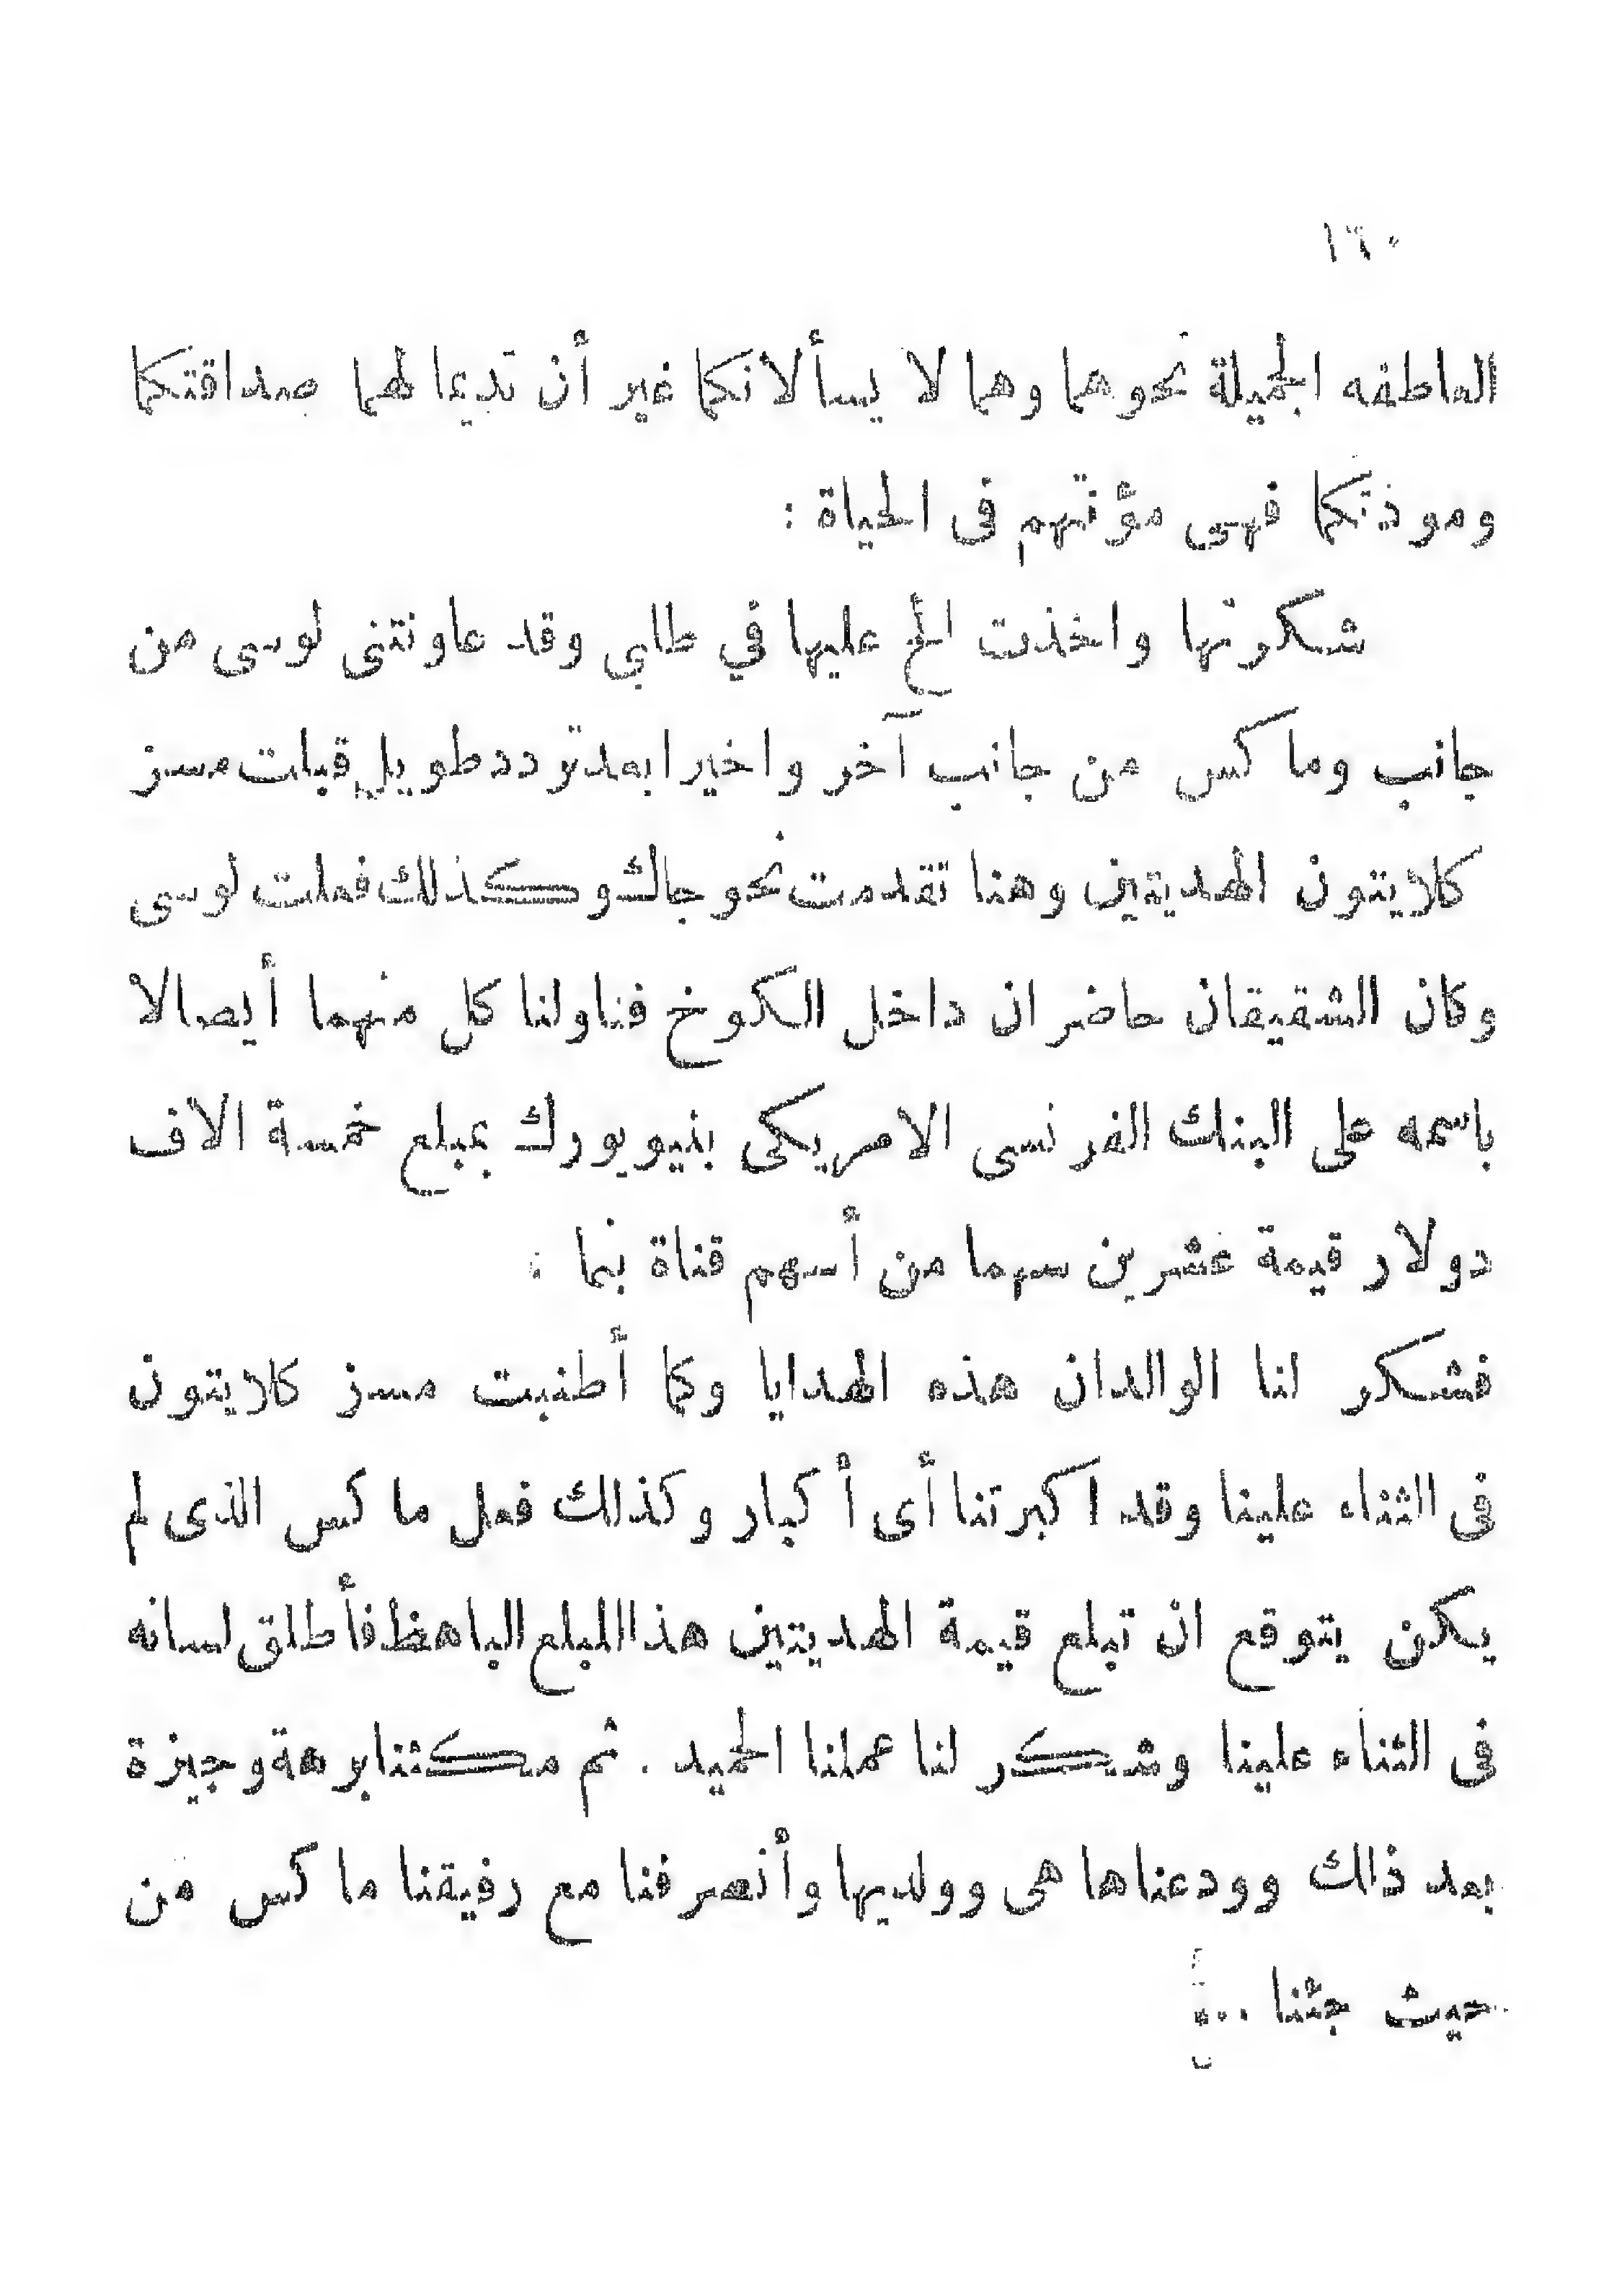 ١٦٠
العاطفه الجميلة نحوهما وهما لا يسألانكما غير أن تديما لهما صداقتكما
ومودتكما فهى مؤنتهم فى الحياة :
شكرتها واخذت الح عليها في طلبى وقد عاونتنى لوسى من
جانب وماكس من جانب آخر واخيرا بعد تردد طويل قبلت مسز
كلايتون الهديتين وهنا تقدمت نحو جاك وكذلك فعلت لوسى
وكان الشقيقان حاضران داخل الكوخ فناولنا كل منهما أيصالا
باسمه على البنك الفرنسى الامريكى بنيويورك بمبلع خمسة الاف
دولار قيمة عشرين سهما من أسهم قناة بنما :
فشكر لنا الوالدان هذه الهدايا وكما أطنبت مسز كلايتون
فى الثناء علينا وقد اكبرتنا أى أكبار وكذلك فعل ماكس الذى لم
يكن يتوقع ان تبلع قيمة الهديتين هذا المبلع الباهظ فأطلق لسانه
فى الثناء علينا وشكر لنا عملنا الحميد . ثم مكثنا برهة وجيزة
بعد ذلك وودعناها هى وولديها وأنصرفنا مع رفيقنا ماكس من
حيث جئنا ...